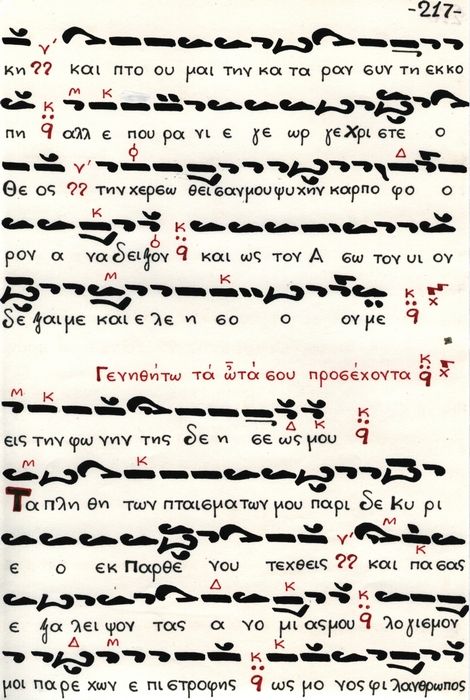 -217-
κη καὶ πτο ου μαι την κα τα ραν συν τη εκκο
πη αλλ ε που ρα νι ε γε ωρ γε Χρι στε ο
Θε ος την χερσω θει σαν μου ψυχην καρπο φο ο
ρον α να δει ξον και ως τον Α σω τον υι ον
δε ξαι με και ε λε η σο ο ου με
Γενηθήτω τά ὦτά σου προσέχοντα
εις την φω νην της δε η σε ως μου
Τα πλη θη των πταισματων μου παρι δε κυ ρι
ε ο εκ Παρθε νου τεχθεις και πασας
ε ξα λειψον τας α νο μι ας μου λογισμον
μοι παρε χων ε πιστροφης ως μο νος φι λανθρωπος